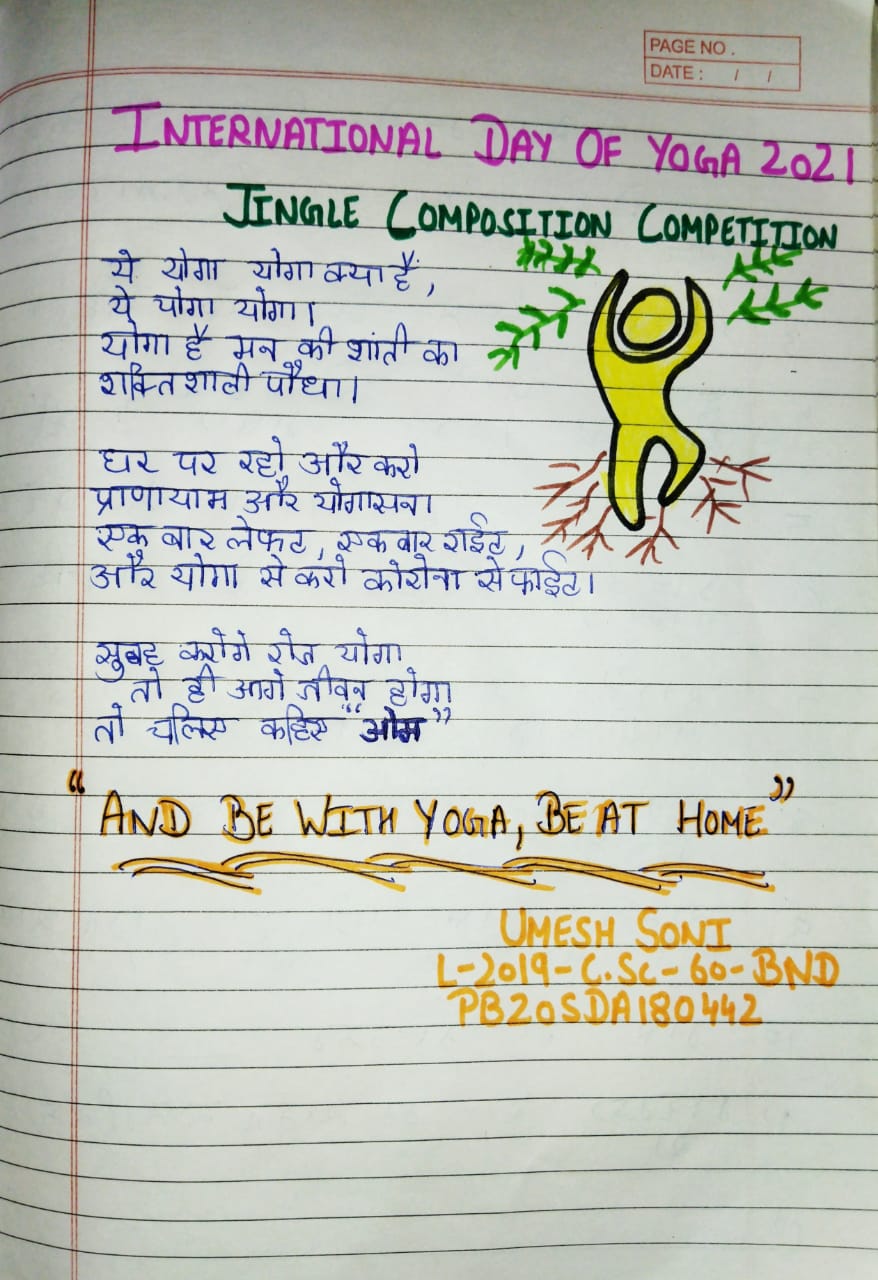 PAGE NO.
DATE: / /
INTERNATIONAL DAY OF YOGA 2021
JINGLE COMPOSITION COMPETITION
ये योगा योगा क्या हैं,
ये योगा योगा।
योगा है मन की शांती का
शक्तिशाली पौधा।
घर पर रहो और करो
प्राणायाम और योगासन।
एक बार लेफ्ट, एक बार राईट,
और योगा से करो कोरोना से फाईट।
सुबह करोगे रोज योगा
तो ही आगे जीवन होगा
तो चलिए कहिए "ओम"
"AND BE WITH YOGA, BE AT HOME"
UMESH SONI
L-2019-C.Sc-60-BND
PB20SDA180442